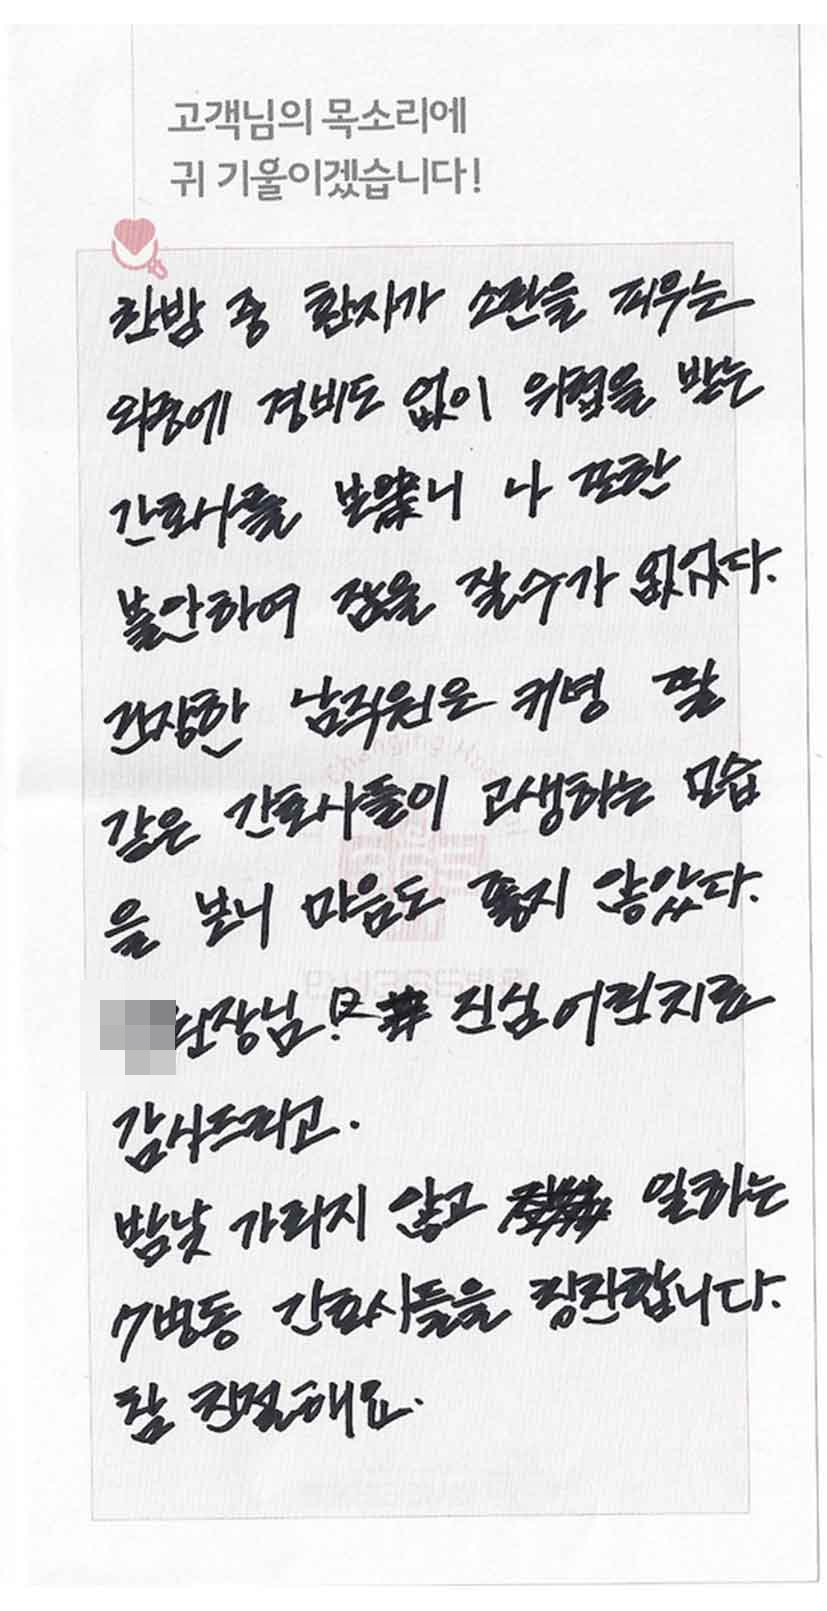 고객님의 목소리에
귀 기울이겠습니다!
한밤 중 환자가 소란을 피우는
와중에 경비도 없이 위협을 받는
간호사를 보았니 나 또한
불안하여 잠을 잘수가 없었다.
건장한 남직원은 커녕 딸
같은 간호사들이 고생하는 모습
을 보니 마음도 좋지 않았다.
원장님! 진심어린치료
감사드리고.
밤낮 가리지 않고 일하는
7병동 간호사들을 칭찬합니다.
참 친절해요.